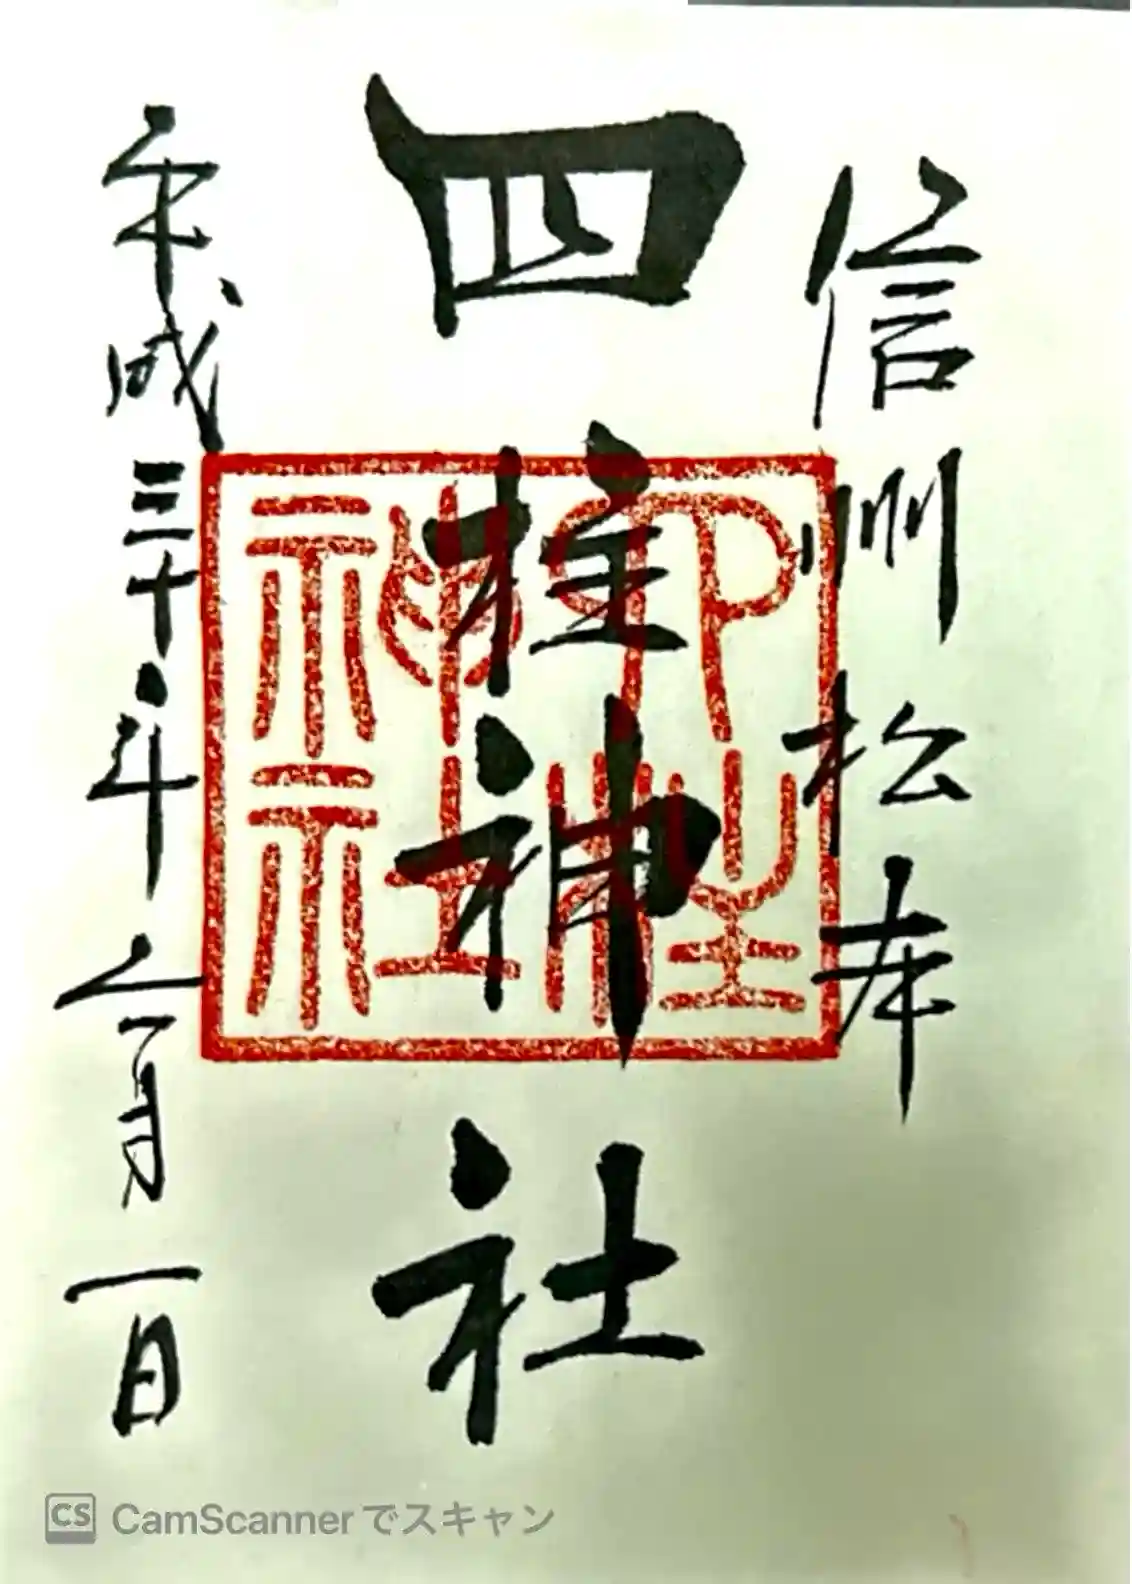 信州松本
四柱神社
四柱
神社
平成三十年六月一日
CS CamScannerでスキャン